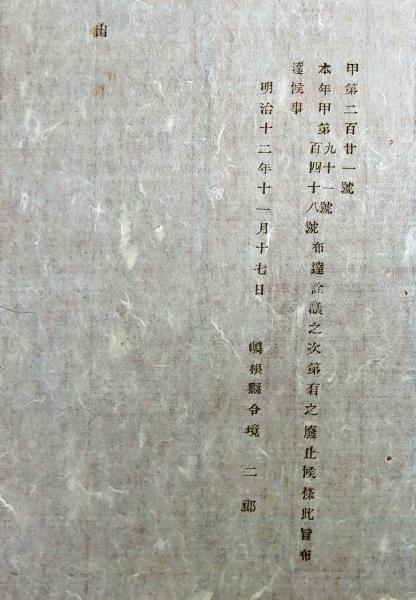 甲第二百廿一號
本年甲第九十一號百四十八號布達詮議之次第有之廢止候條此旨布
達候事
明治十二年十一月十七日
嶋根縣令境二郎